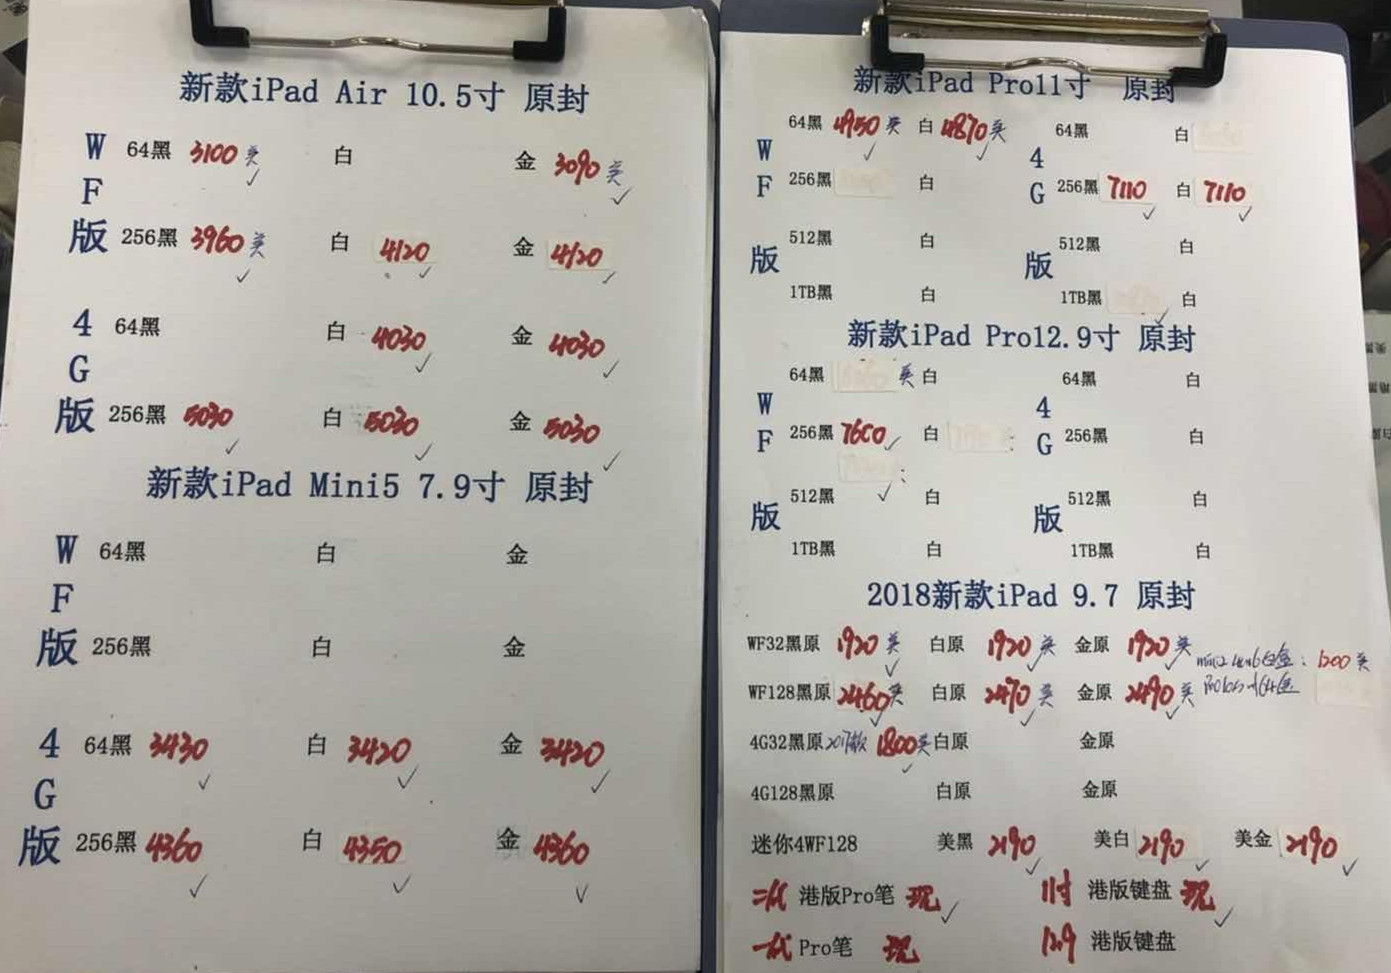 新款iPad Air 10.5寸 原封
WF版
64黑 3100 美 白 金 3090 美
256黑 3960 美 白 4120 金 4120
4G版
64黑 白 4030 金 4030
256黑 5030 白 5030 金 5030
新款iPad Mini5 7.9寸 原封
WF版
64黑 白 金
256黑 白 金
4G版
64黑 3430 白 3420 金 3420
256黑 4360 白 4350 金 4360
新款iPad Pro11寸 原封
WF版
64黑 4950 美 白 4870 美
256黑 白
512黑 白
1TB黑 白
4G版
64黑 白
256黑 7110 白 7110
512黑 白
1TB黑 白
新款iPad Pro12.9寸 原封
WF版
64黑 美 白
256黑 7600 白
512黑 白
1TB黑 白
4G版
64黑 白
256黑 白
512黑 白
1TB黑 白
2018新款iPad 9.7 原封
WF32黑原 1920 美 白原 1920 美 金原 1920 美
1200 美
WF128黑原 2460 美 白原 2470 美 金原 2490 美
4G32黑原 2017款 1800 美 白原 金原
4G128黑原 白原 金原
迷你4WF128 美黑 2190 美白 2190 美金 2190
二代 港版Pro笔 现 11寸 港版键盘 现
一代 Pro笔 现 12.9 港版键盘